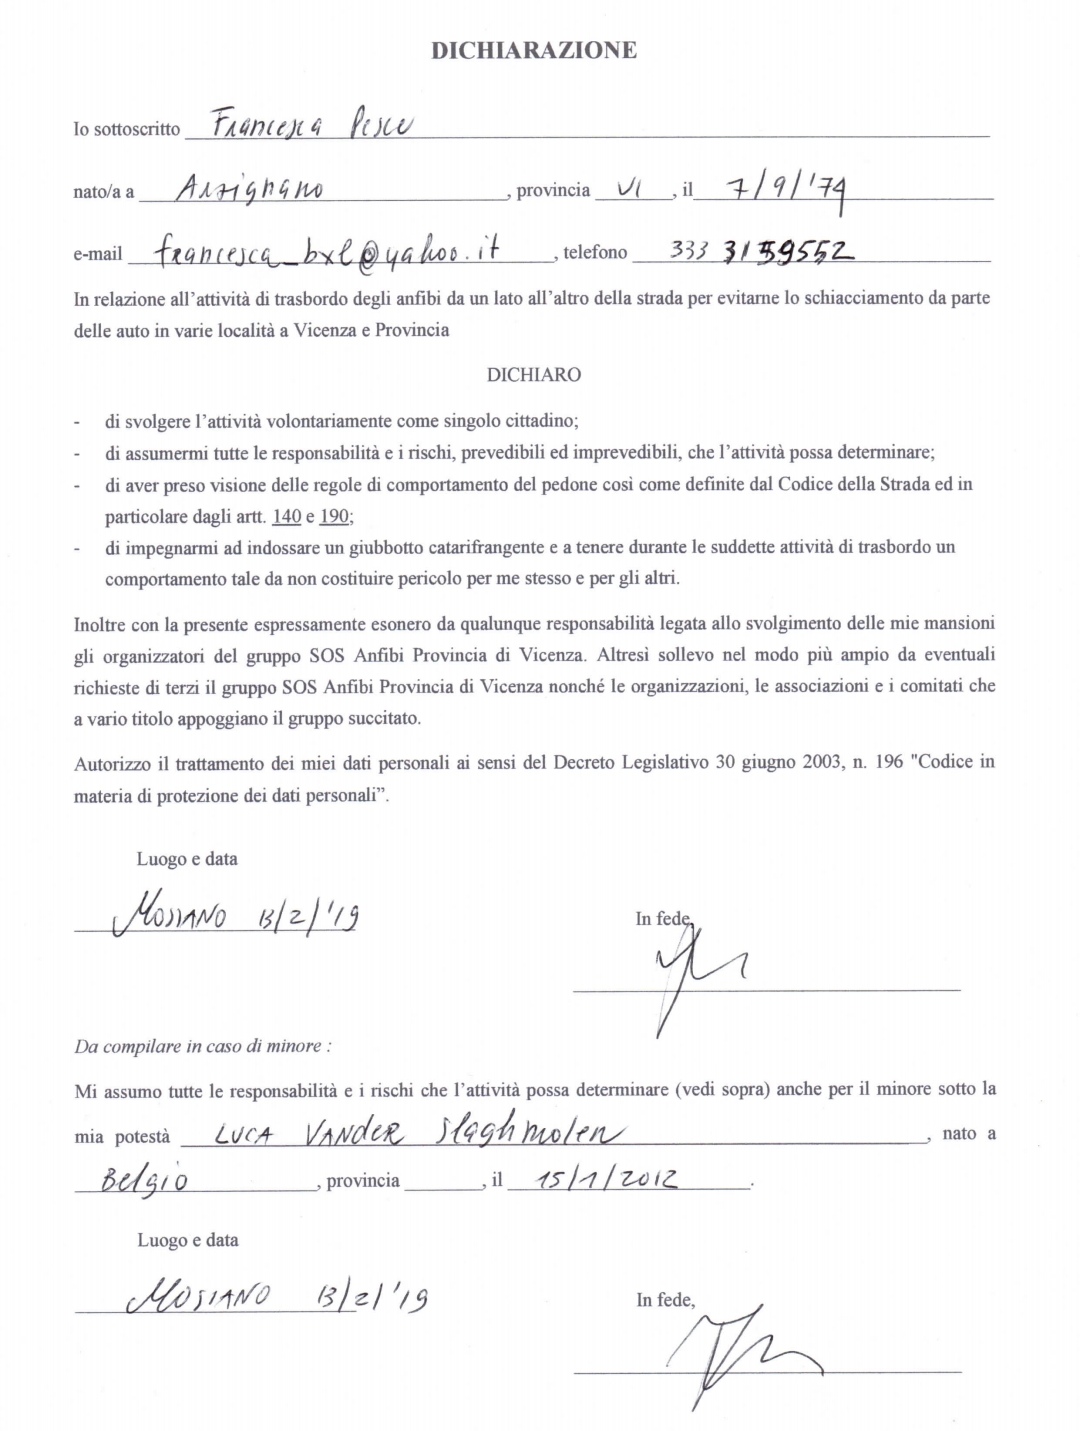 DICHIARAZIONE
Io sottoscritto Francesca Pesce
nato/a a Arzignano, provincia VI, il 7/9/'74
e-mail francesca_bxl@yahoo.it, telefono 333 3159552
In relazione all'attività di trasbordo degli anfibi da un lato all'altro della strada per evitarne lo schiacciamento da parte
delle auto in varie località a Vicenza e Provincia
DICHIARO
- di svolgere l'attività volontariamente come singolo cittadino;
- di assumermi tutte le responsabilità e i rischi, prevedibili ed imprevedibili, che l'attività possa determinare;
- di aver preso visione delle regole di comportamento del pedone così come definite dal Codice della Strada ed in
particolare dagli artt. 140 e 190;
- di impegnarmi ad indossare un giubbotto catarifrangente e a tenere durante le suddette attività di trasbordo un
comportamento tale da non costituire pericolo per me stesso e per gli altri.
Inoltre con la presente espressamente esonero da qualunque responsabilità legata allo svolgimento delle mie mansioni
gli organizzatori del gruppo SOS Anfibi Provincia di Vicenza. Altresì sollevo nel modo più ampio da eventuali
richieste di terzi il gruppo SOS Anfibi Provincia di Vicenza nonché le organizzazioni, le associazioni e i comitati che
a vario titolo appoggiano il gruppo succitato.
Autorizzo il trattamento dei miei dati personali ai sensi del Decreto Legislativo 30 giugno 2003, n. 196 "Codice in
materia di protezione dei dati personali”.
Luogo e data
Mossano 13/2/'19
In fede,
Da compilare in caso di minore :
Mi assumo tutte le responsabilità e i rischi che l'attività possa determinare (vedi sopra) anche per il minore sotto la
mia potestà LUCA VANDER Slaghmolen, nato a
Belgio, provincia , il 15/1/2012.
Luogo e data
Mossano 13/2/'19
In fede,